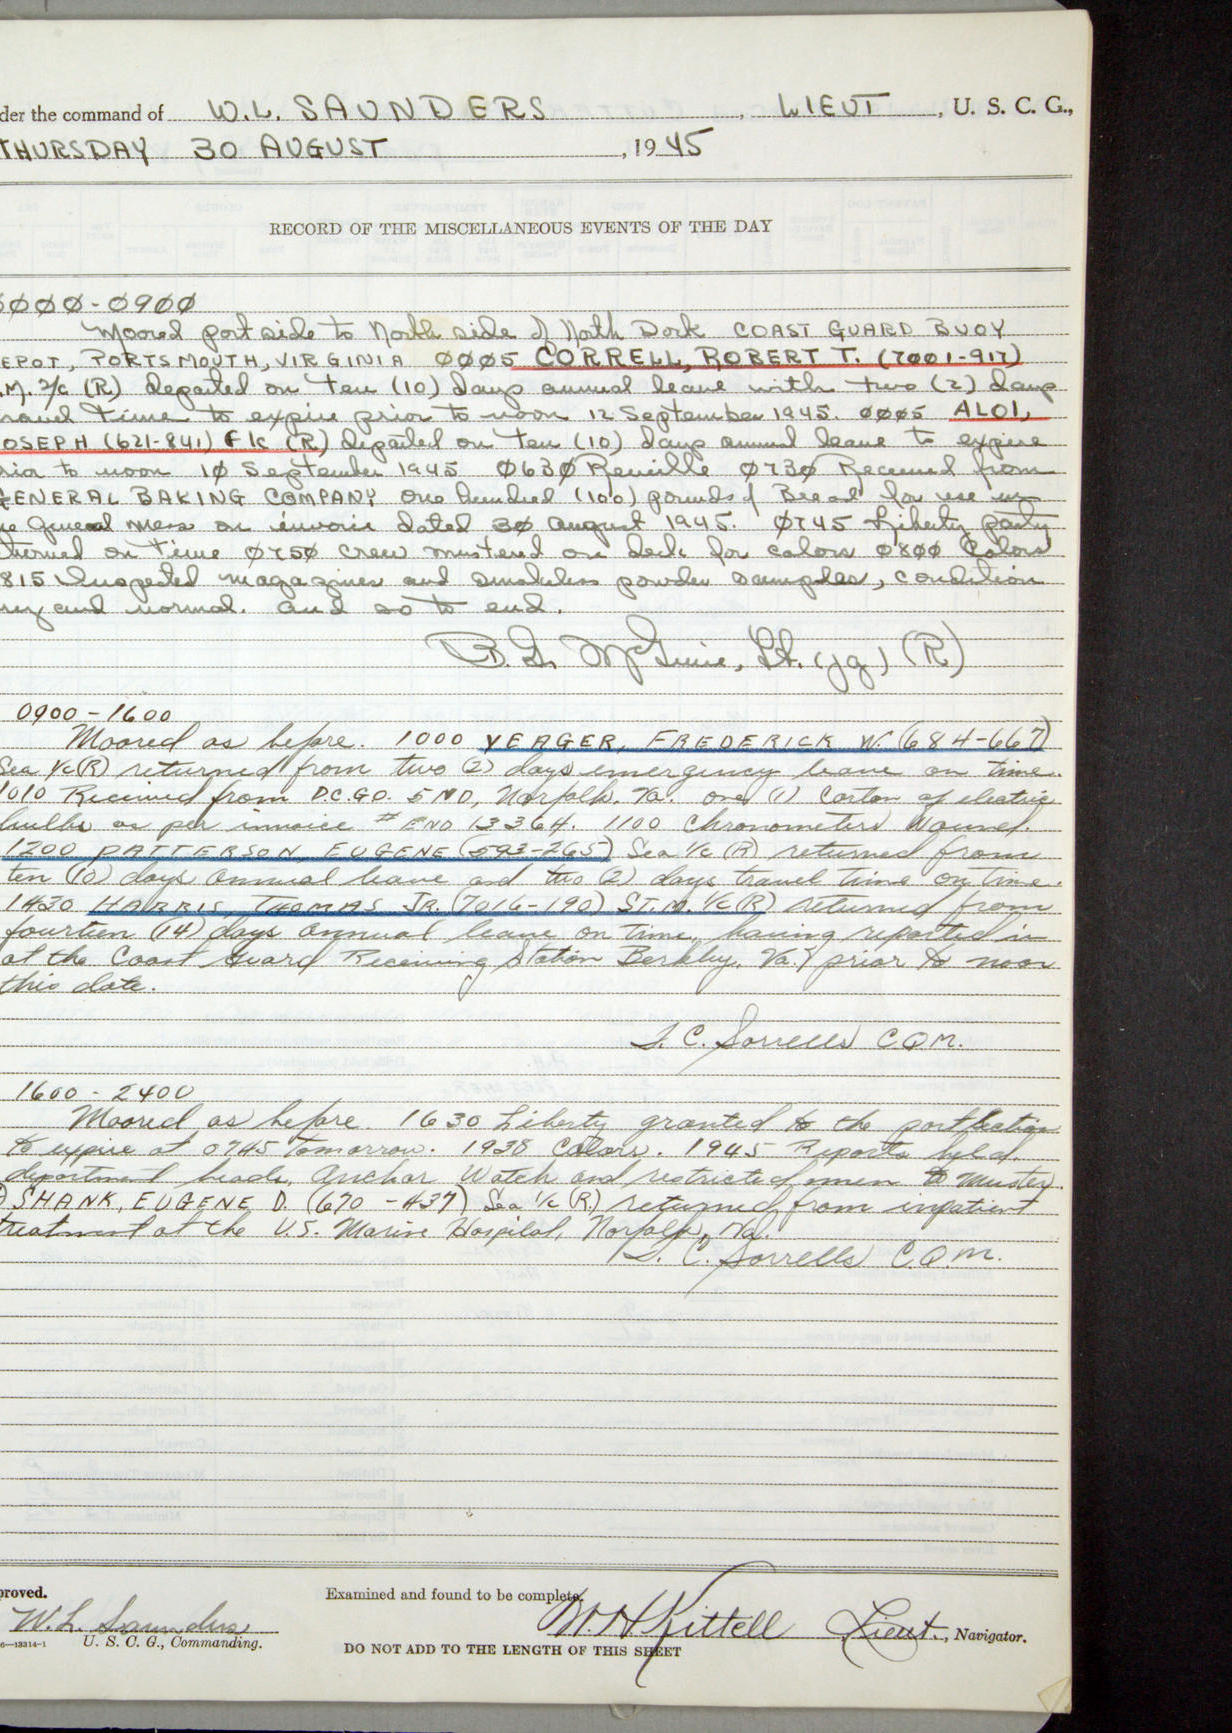 der the command of W. L. SAUNDERS, LIEUT, U. S. C. G.,
THURSDAY 30 AUGUST, 1945
RECORD OF THE MISCELLANEOUS EVENTS OF THE DAY
0000-0900
Moored port side to North side of North Dock COAST GUARD BUOY
EPOT, PORTSMOUTH, VIRGINIA 0005 CORRELL, ROBERT T. (7001-917)
.M. 2/c (R) departed on ten (10) days annual leave with two (2) days
ravel time to expire prior to noon 12 September 1945. 0005 ALOI,
OSEPH (621-841) F1c (R) departed on ten (10) days annual leave to expire
rior to noon 10 September 1945 0630 Reveille 0730 Received from
GENERAL BAKING COMPANY one hundred (100) pounds of Bread for use in
he general mess on invoice dated 30 August 1945. 0745 Liberty party
turned on time 0750 crew mustered on deck for colors 0800 Colors
815 Inspected magazines and smokeless powder samples, condition
ry and normal. and so to end.
B. G. McGuire, Lt. (jg) (R)
0900-1600
Moored as before. 1000 YEAGER, FREDERICK W. (684-667)
Sea 1/c (R) returned from two (2) days emergency leave on time.
1010 Received from D.C.G.O. 5 ND, Norfolk, Va. one (1) carton of electric
bulbs as per invoice # END 13364. 1100 Chronometers Wound.
1200 PATTERSON, EUGENE (593-265) Sea 1/c (R) returned from
ten (10) days annual leave and two (2) days travel time on time.
1430 HARRIS, THOMAS JR. (7016-190) ST.M. 1/c (R) returned from
fourteen (14) days annual leave on time, having reported in
at the Coast Guard Receiving Station Berkley, Va. prior to noon
this date.
S. C. Sorrells C.Q.M.
1600-2400
Moored as before. 1630 Liberty granted to the port section
to expire at 0745 tomorrow. 1938 Colors. 1945 Reports by
department heads, Anchor Watch and restricted men to Muster.
SHANK, EUGENE D. (670-437) Sea 1/c (R) returned from inpatient
treatment at the U.S. Marine Hospital, Norfolk, Va.
S. C. Sorrells C.Q.M.
proved.
W. L. Saunders
U. S. C. G., Commanding.
6—13314-1
Examined and found to be complete.
W. H. Kittell Lieut., Navigator.
DO NOT ADD TO THE LENGTH OF THIS SHEET